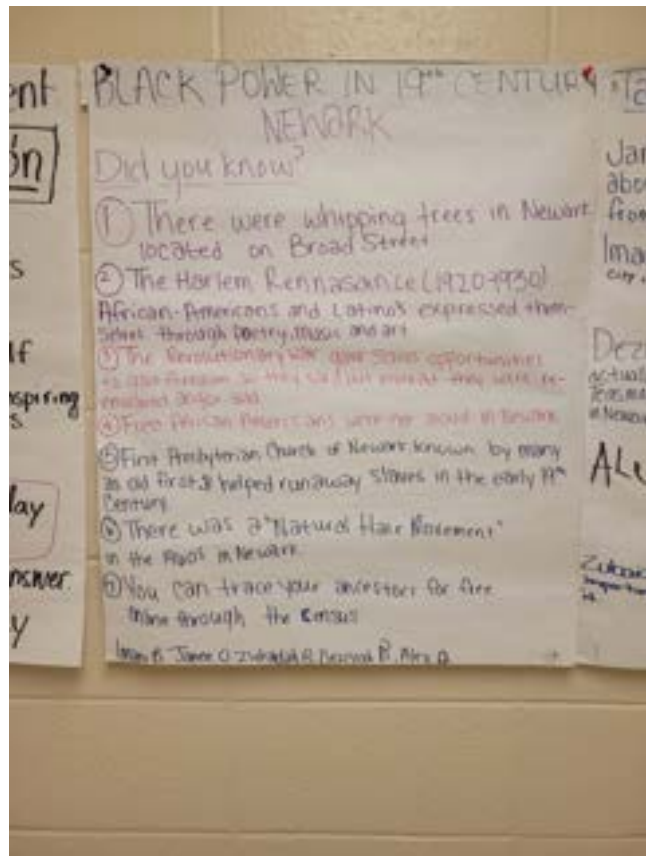 ent
ón
s
lf
spiring
s
lay
nswer
y
BLACK POWER IN 19th CENTURY
NEWARK
Did you know?
① There were whipping trees in Newark
located on Broad Street
② The Harlem Rennasance (1920-1930)
African-Americans and Latino's expressed them-
selves through poetry, music and art
③ The Revolutionary War gave slaves opportunities
to gain freedom so they
they were re-
enslaved and/or sold
④ Free African Americans were not in Newark
⑤ First Presbyterian Church of Newark known by many
as old first helped runaway slaves in the early 19th
Century
⑥ There was a "Natural Hair Movement"
in the in Newark
⑦ You can trace your ancestors for free
online through the census
Iman B. Janee O. B, Alex D.
Ta
Jan
abo
from
Ima
city
Dezi
actual
in Newar
ALe